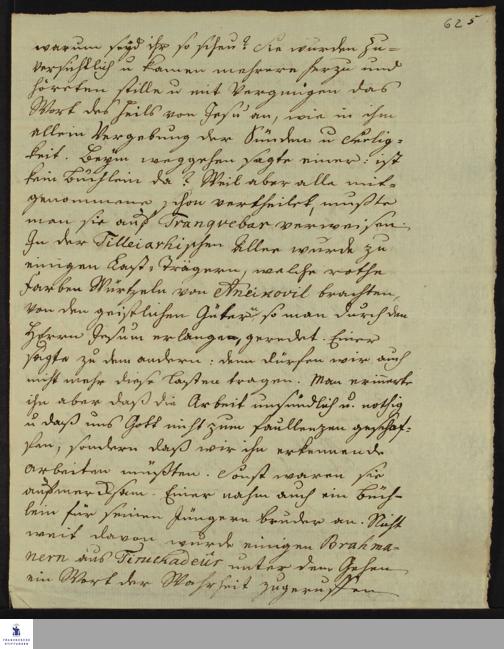 625
warum seyd ihr so scheu? Sie wurden zu=
versichtlich u kamen mehrere herzu und
höreten stille u mit Vergnügen das
Wort des Heils von Jesu an, wie in ihm
allein Vergebung der Sünden u Seelig=
keit. Beym weggehen sagte einer: ist
kein Büchlein da? Weil aber alle mit=
genommene schon vertheilet, mußte
man sie auf Tranquebar verweisen.
In der Tilleiarhischen Allee wurde zu
einigen Last=Trägern, welche rothe
Farben Würtzeln von Aneicovil brachten,
von den geistlichen Gütern so man durch den
HErrn Jesum erlangen, geredet. Einer
sagte zu dem andern: denn dürfen wir auch
nicht mehr diese Lasten tragen. Man erinnerte
ihn aber daß die Arbeit unsündlich u. nöthig
u daß uns Gott nicht zum faullenzen geschaf=
fen, sondern daß wir ihn erkennende
arbeiten müßten. Sonst waren sie
aufmercksam. Einer nahm auch ein Büch=
lein für seinen jüngern Bruder an. Nicht
weit davon wurde einigen Brahma=
nern aus Tirukadeiur unter dem Gehen
ein Wort der Wahrheit zugeruffen
FRANCKESCHE
STIFTUNGEN